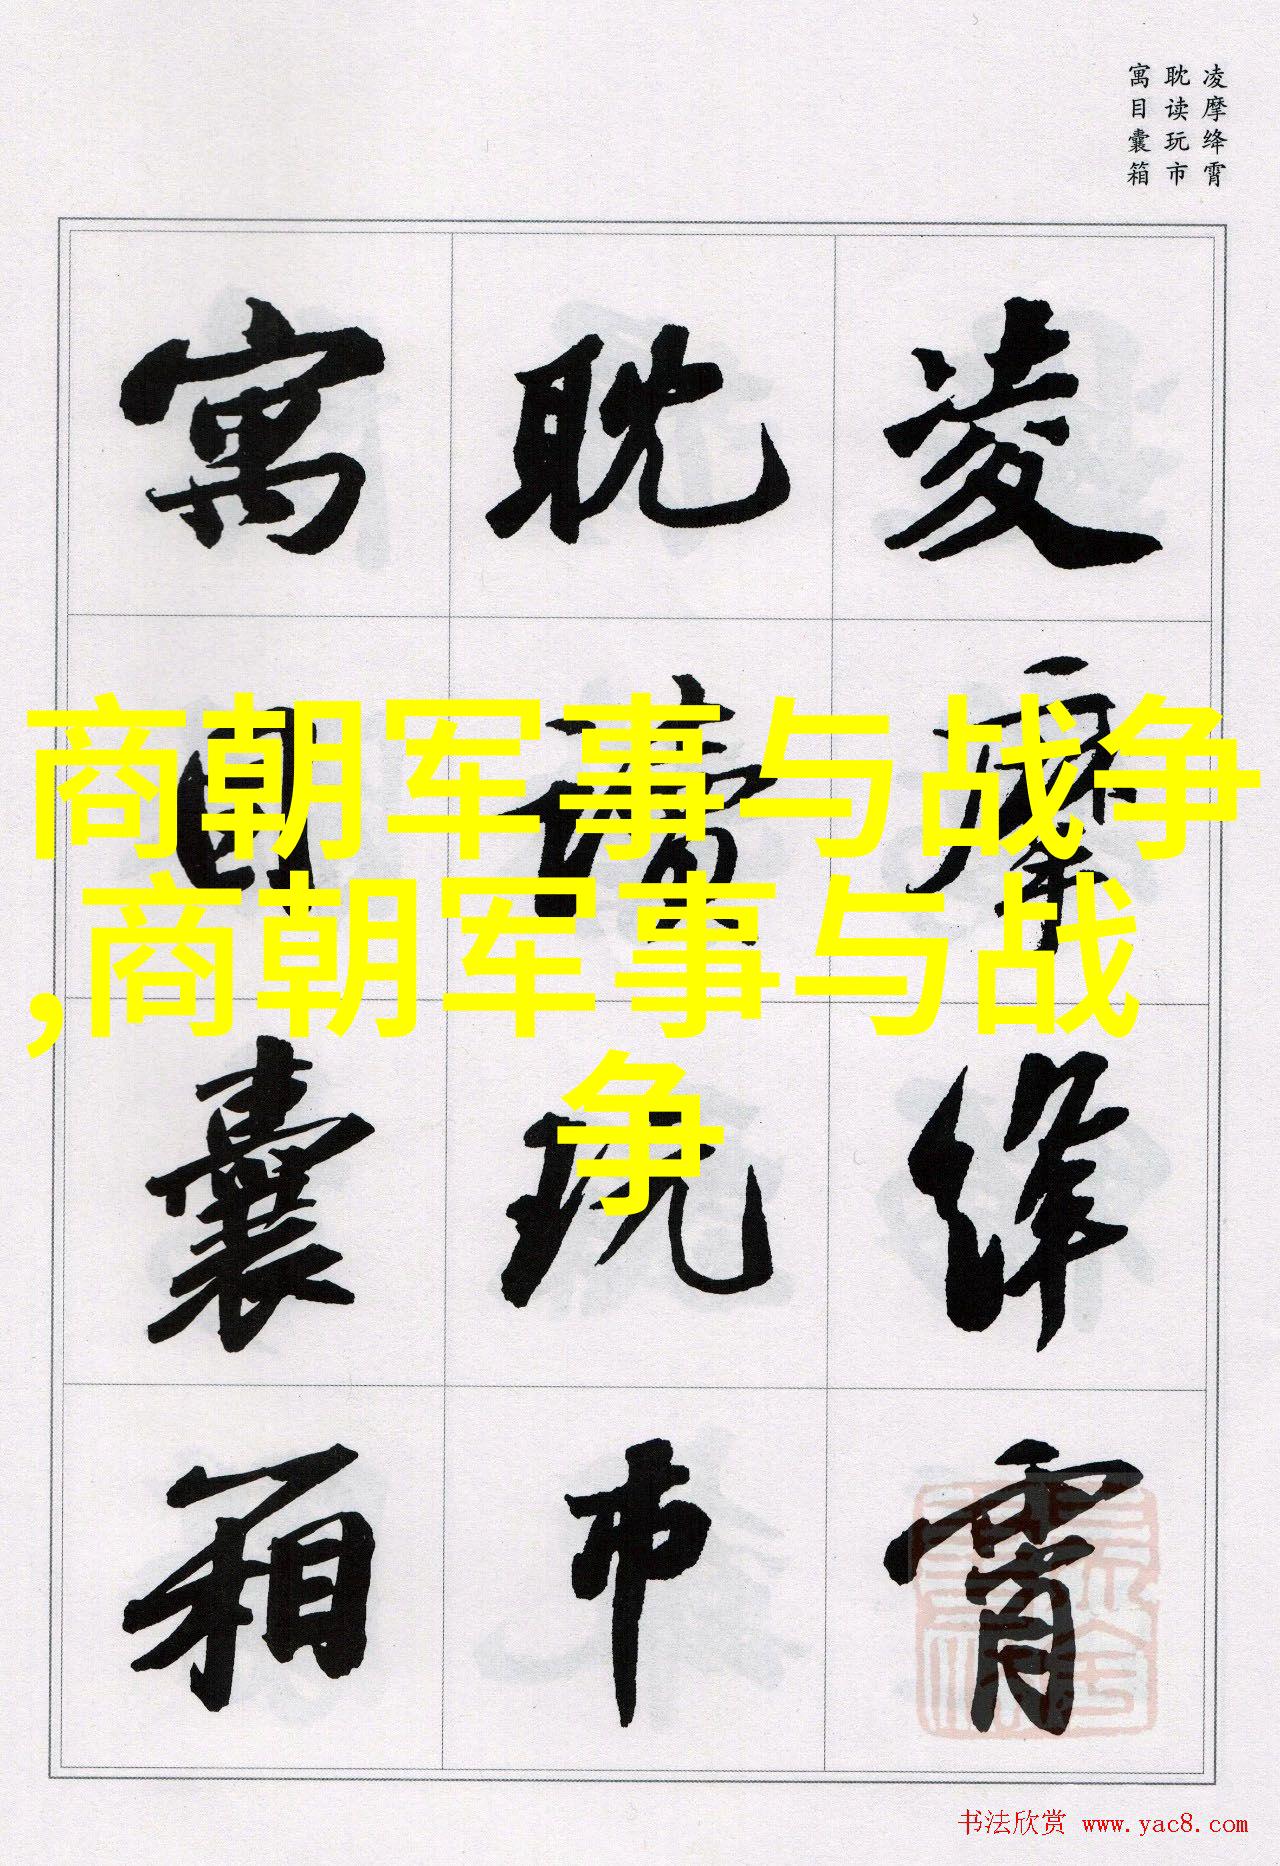 凌摩绛霄
耽读玩市
寓目囊箱
凌摩绛霄
耽讀玩市
寓目囊箱
商朝军事与战争
,商朝军事与战
争
书法欣赏 www.yac8.com